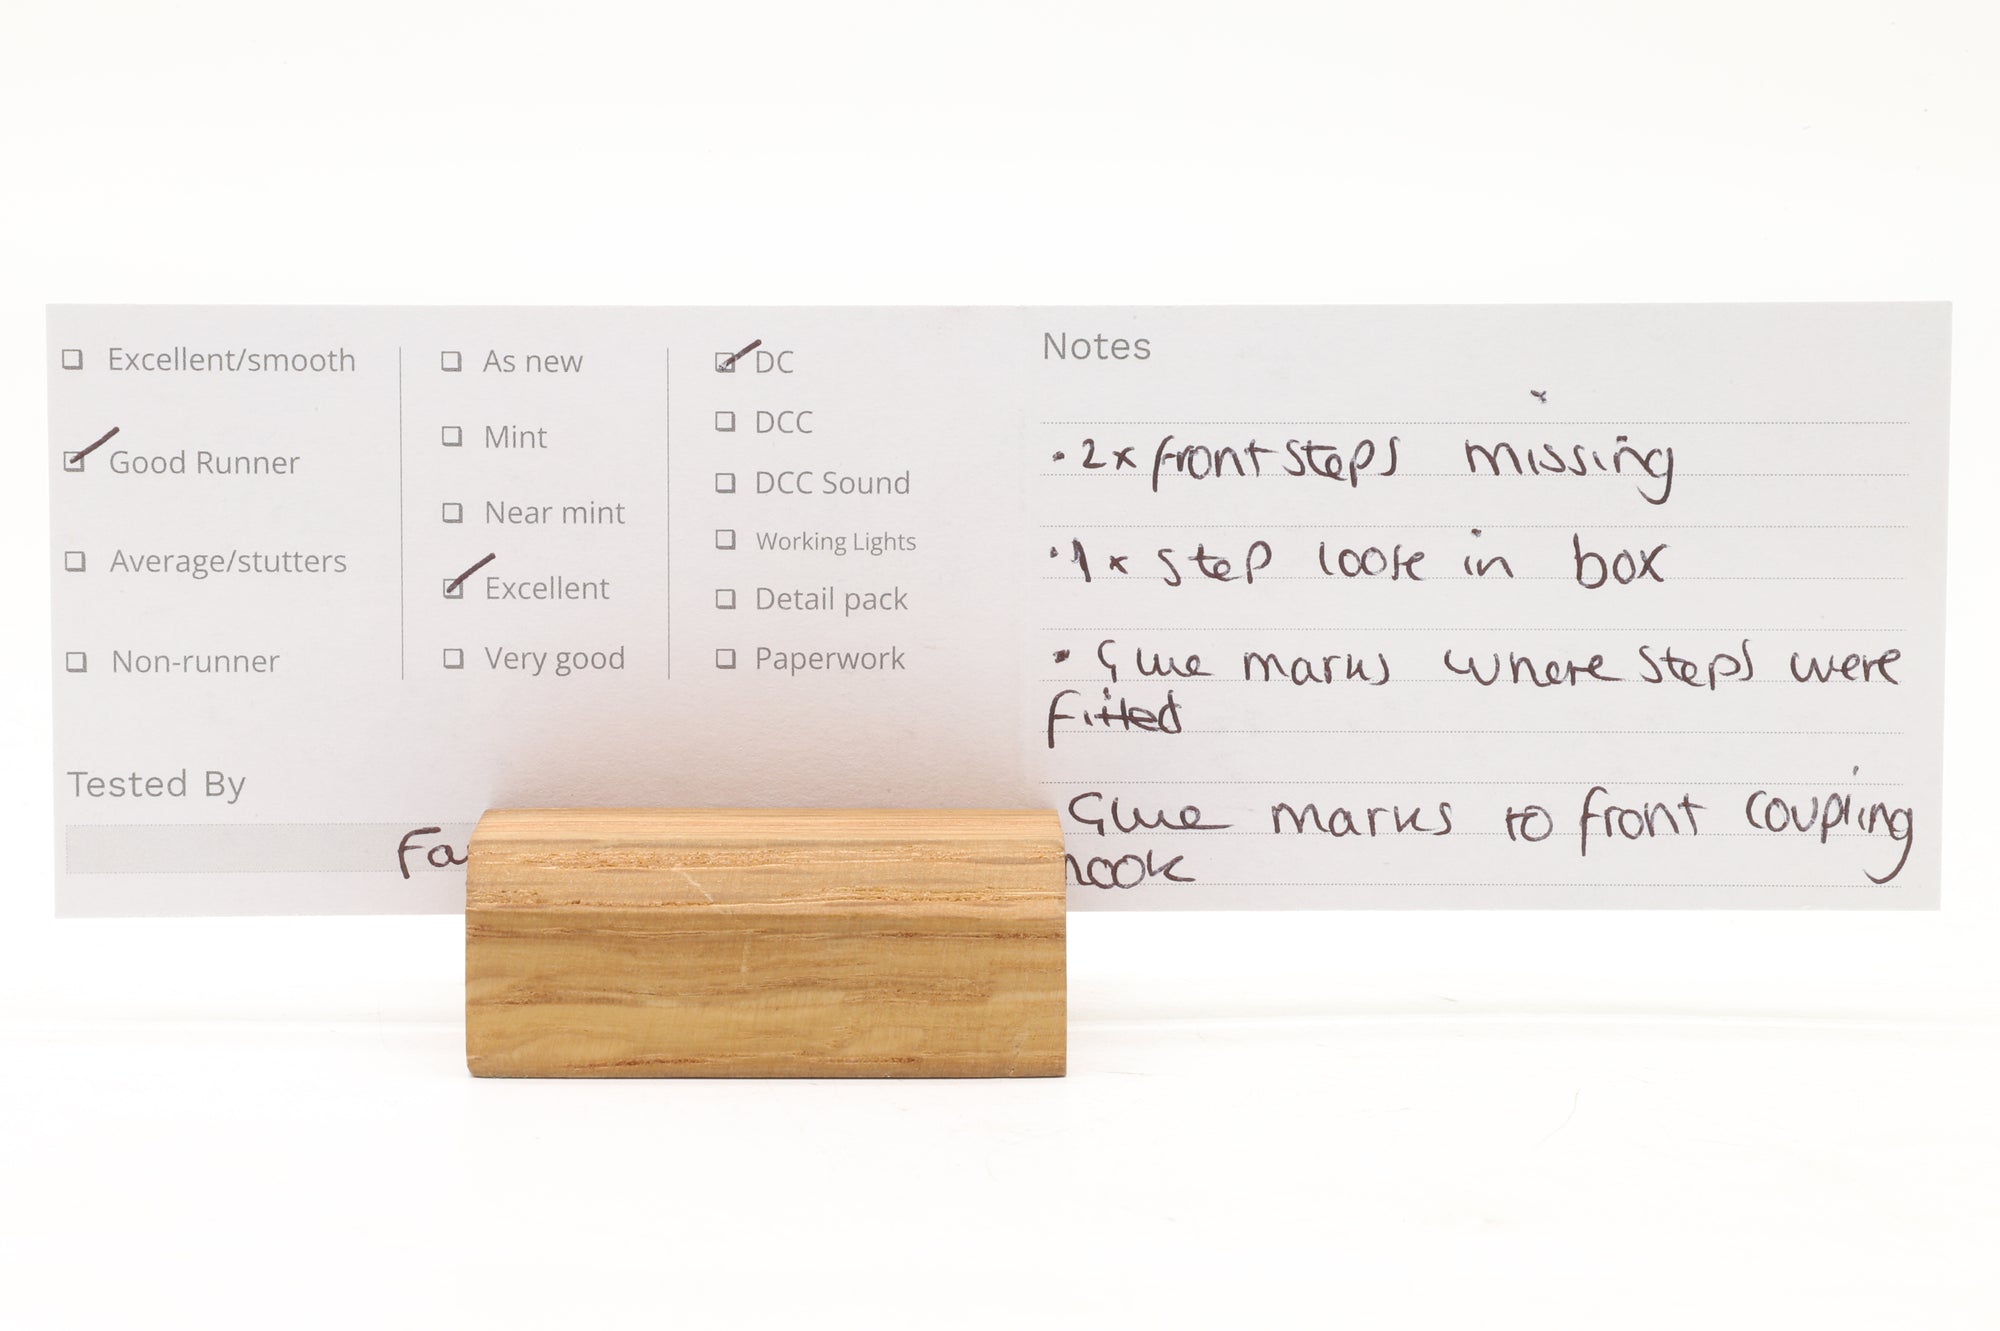 Excellent/smooth
Good Runner
Average/stutters
Non-runner
As new
Mint
Near mint
Excellent
Very good
DC
DCC
DCC Sound
Working Lights
Detail pack
Paperwork
Tested By
Notes
• 2x front steps missing
• 1x step loose in box
• Glue marks where steps were
fitted
Glue marks to front coupling
hook